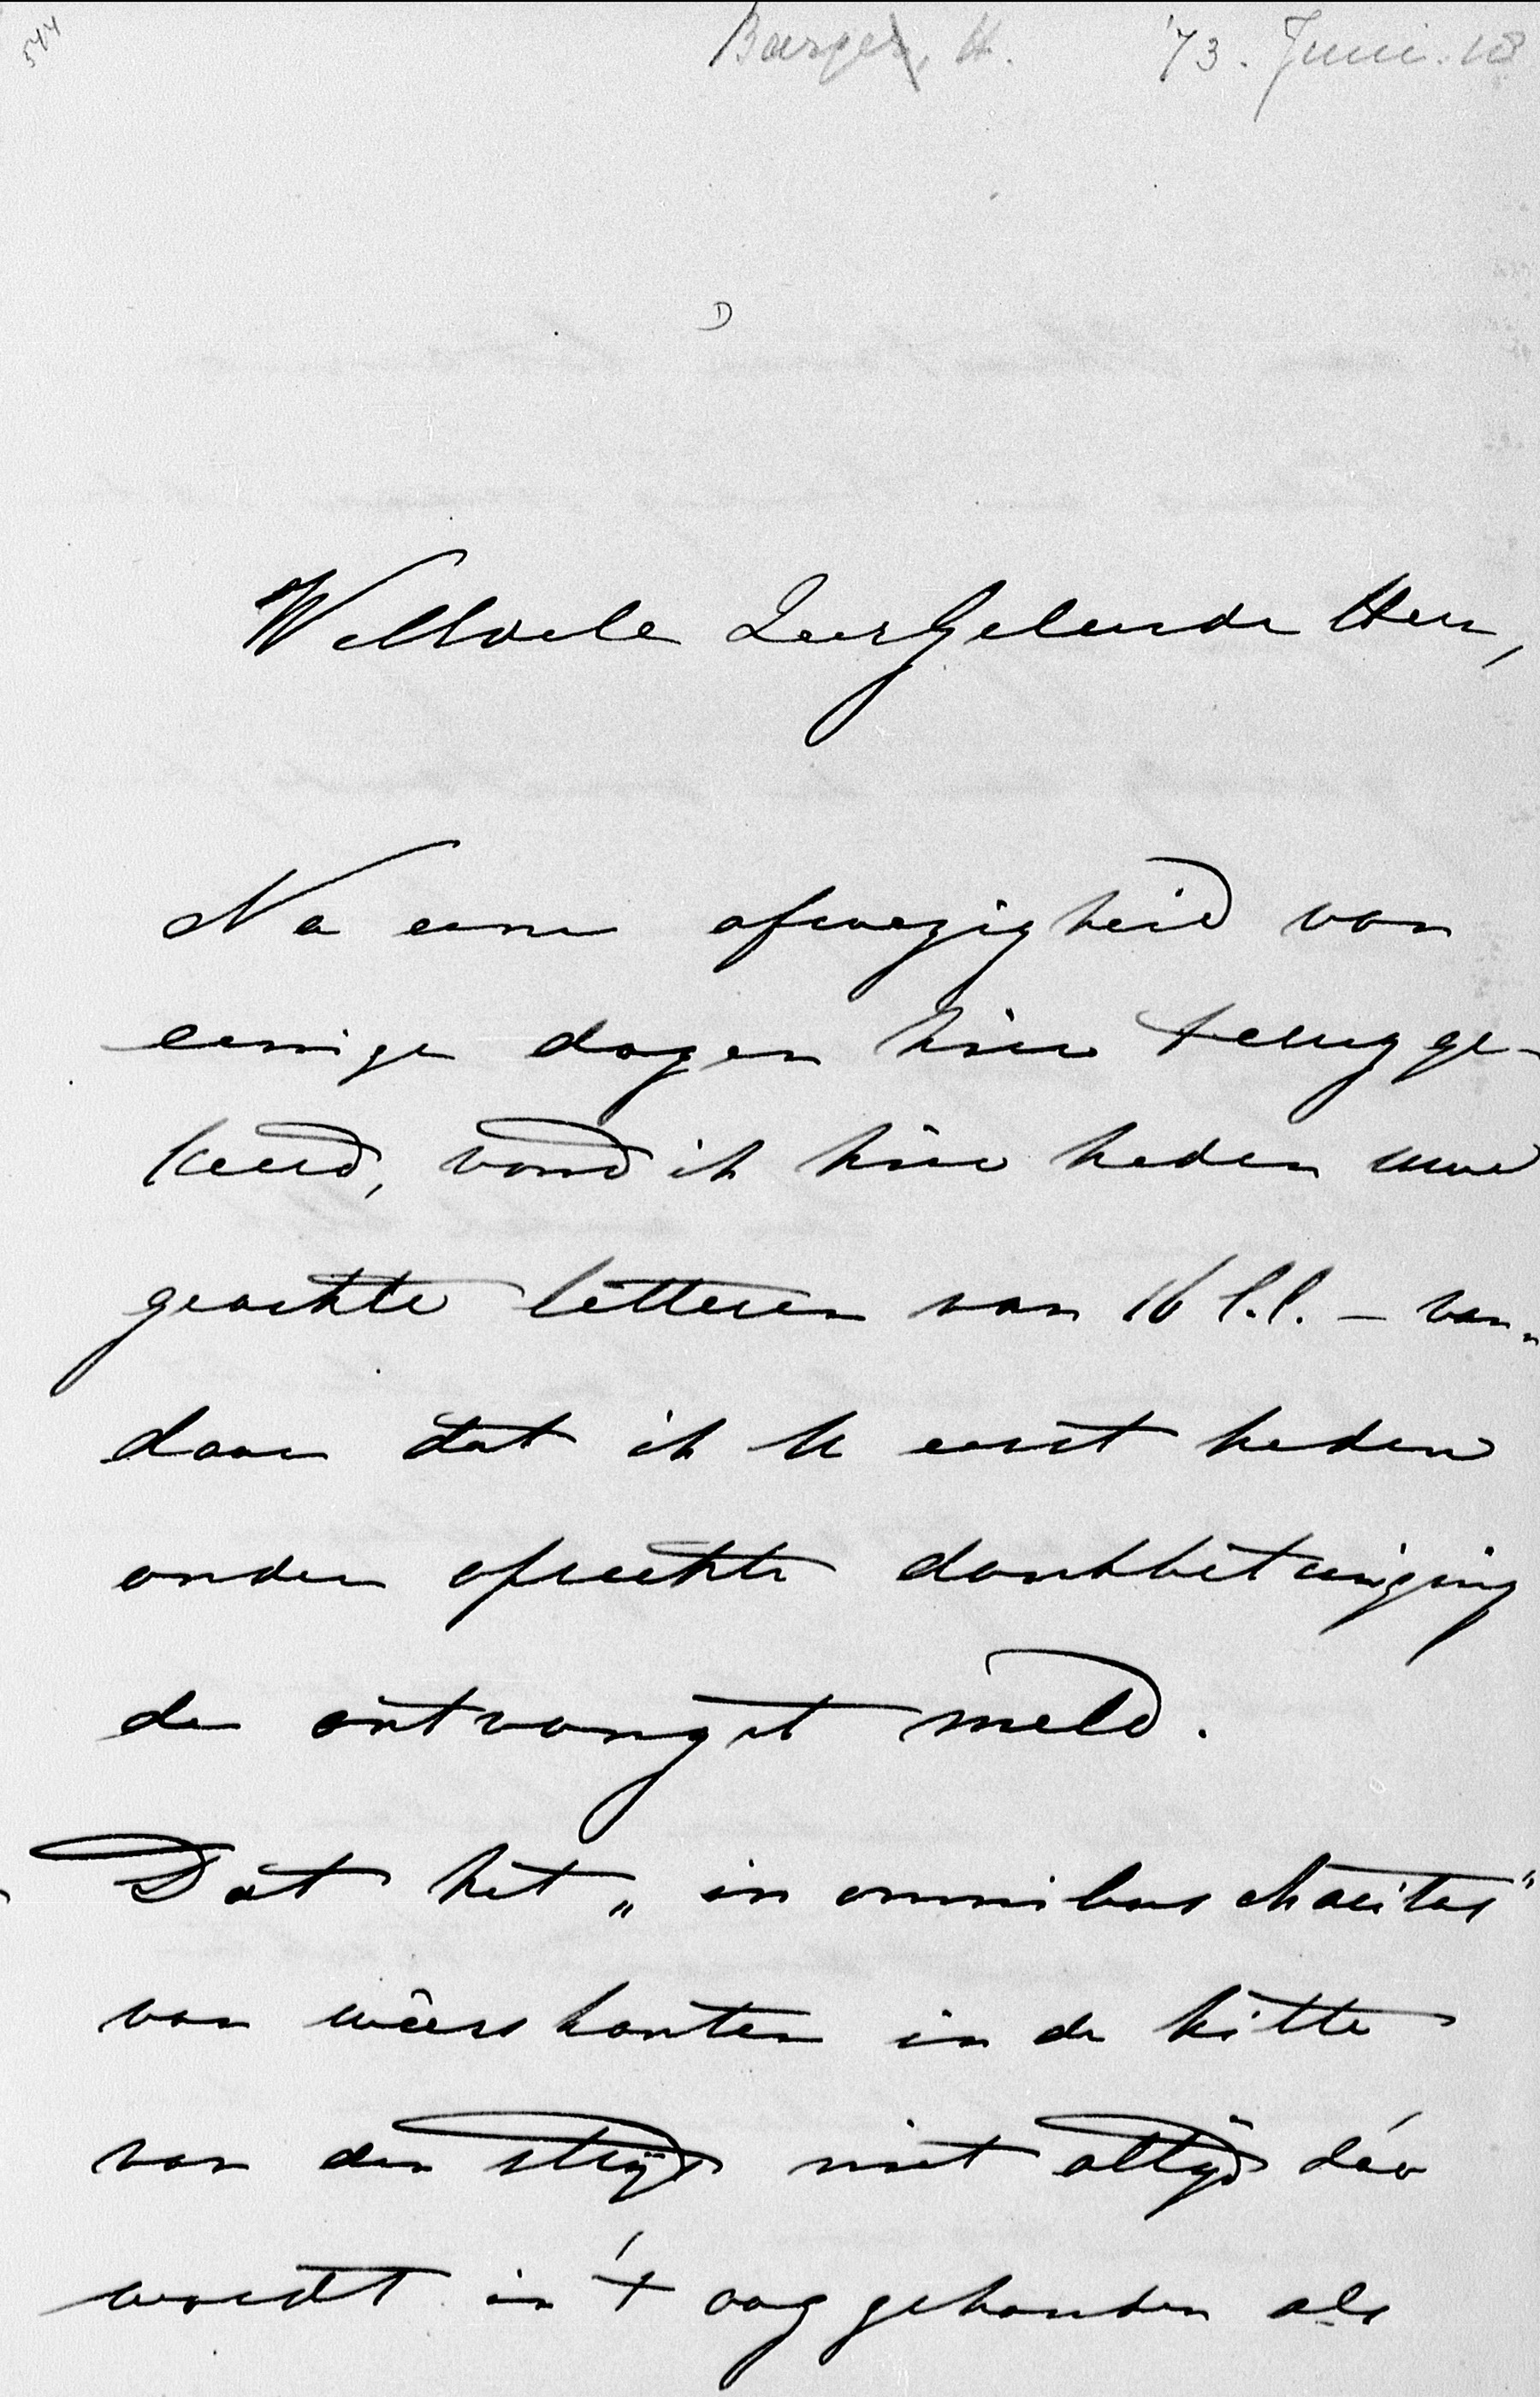 544
Barger, H. '73. Juni. 18
WelEdele ZeerGeleerde Heer,
Na eene afwezigheid van
eenige dagen hier terugge-
keerd, vond ik hier heden uwe
geachte letteren van 16 l.l. – van-
daar dat ik U eerst heden
onder oprechte dankbetuiging
de ontvangst meld.
Dat het „in omnibus charitas"
van weêrskanten in de hitte
van den strijd niet altijd zóo
wordt in 't oog gehouden als